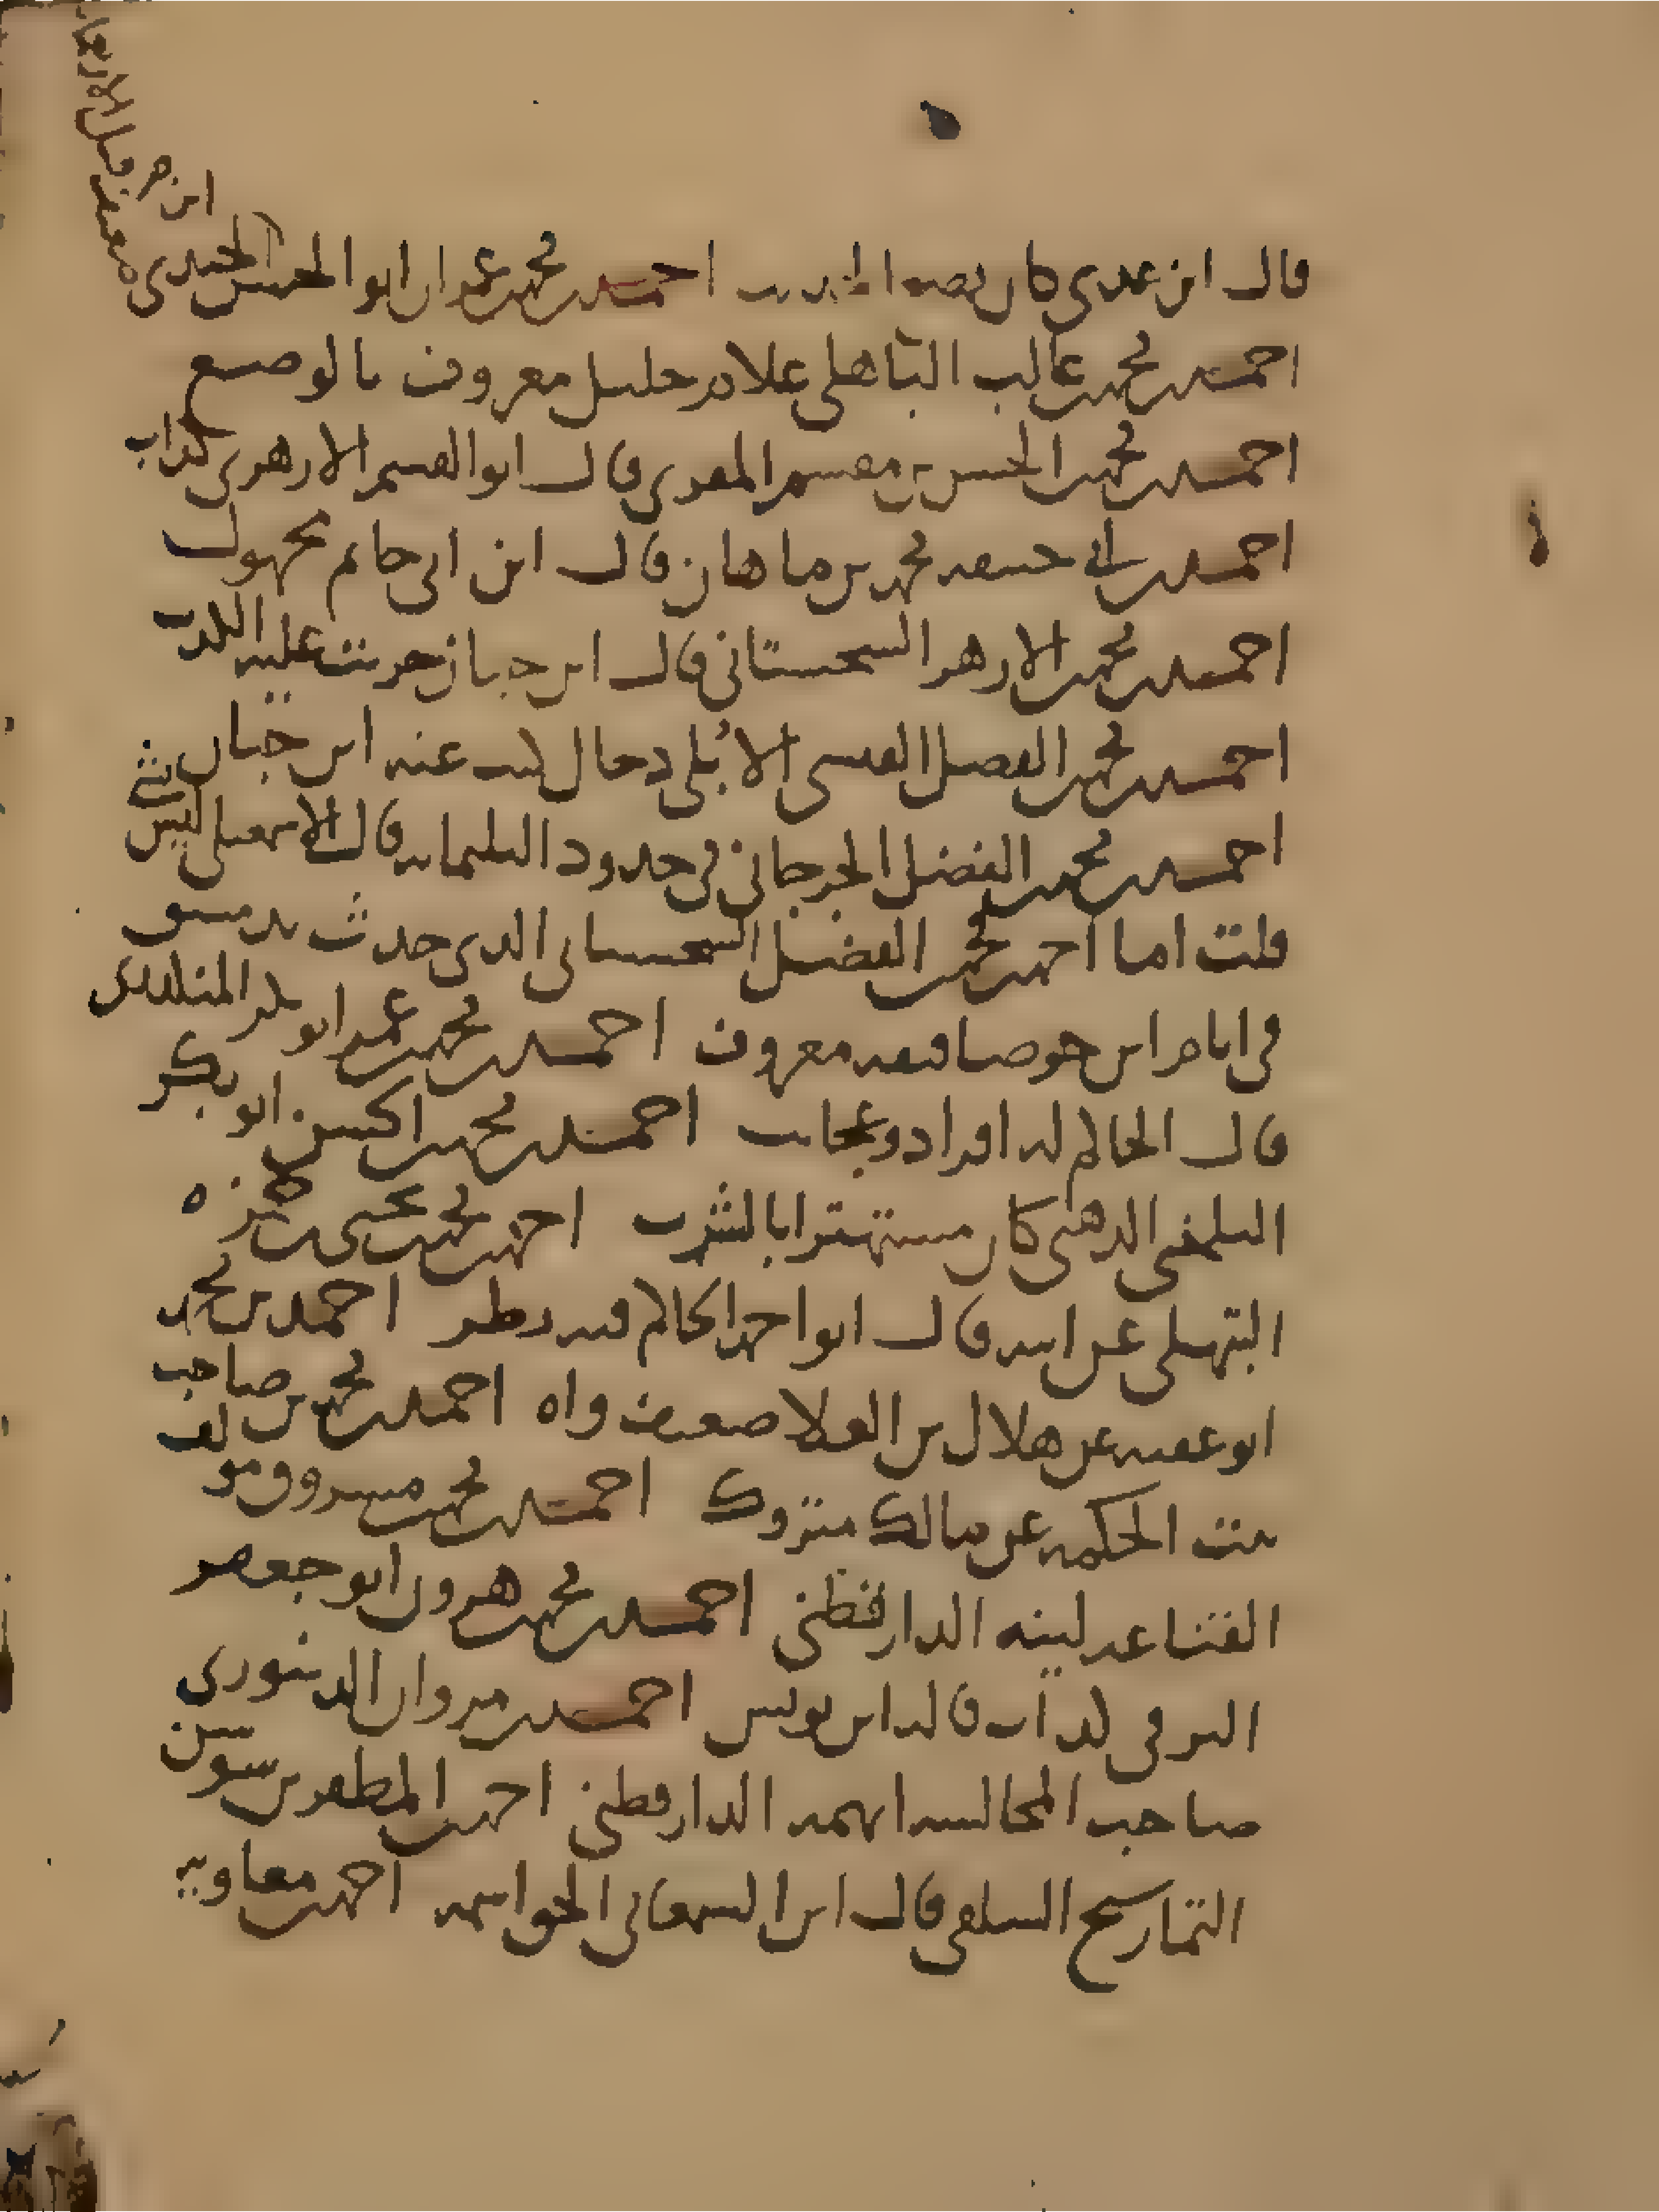 قال ابن عدي كان يضع الحديث احمد بن محمد بن عمران ابو الحسن الجندي
ضعيف قبل الاربعمائة
احمد بن محمد بن غالب الباهلي غلام خليل معروف بالوضع
احمد بن محمد بن الحسن بن مقسم المقري قال ابو القسم الازهري كذاب
احمد بن ابي حنيفه محمد بن ماهان قال ابن ابي حاتم مجهول
احمد بن محمد بن الازهر السجستاني قال ابن حبان جربت عليه الكذب
احمد بن محمد بن الفضل القيسي الابلي دجال كتب عنه ابن حبان
احمد بن محمد بن الفضل الجرجاني في حدود الثلثمايه قال الاسمعيلي ليس بشي
قلت اما احمد بن محمد بن الفضل السجستاني الذي حدث بدمشق
في ايام ابن جوصا فثقه معروف احمد بن محمد بن عمر ابو بكر المنكدري
قال الحاكم له افراد وعجايب احمد بن محمد بن الحسن ابو بكر
البلخي الذهبي كان مستهترا بالشرب احمد بن محمد بن يحيى بن حمزه
البتهلي عن ابيه قال ابو احمد الحاكم فيه نظر احمد بن محمد
ابو عقبه عن هلال بن العلا ضعيف واه احمد بن محمد بن صاحب
بيت الحكمه عن مالك متروك احمد بن محمد بن مسروق مولف
القناعه لينه الدارقطني احمد بن محمد بن هرون ابو جعفر
البرقي كذاب قاله ابن يونس احمد بن مروان الدينوري
صاحب المجالسه اتهمه الدارقطني احمد بن المظفر بن سوسن
التمار شيخ السلفي قال ابن السمعاني الحق اسمه احمد بن معاويه